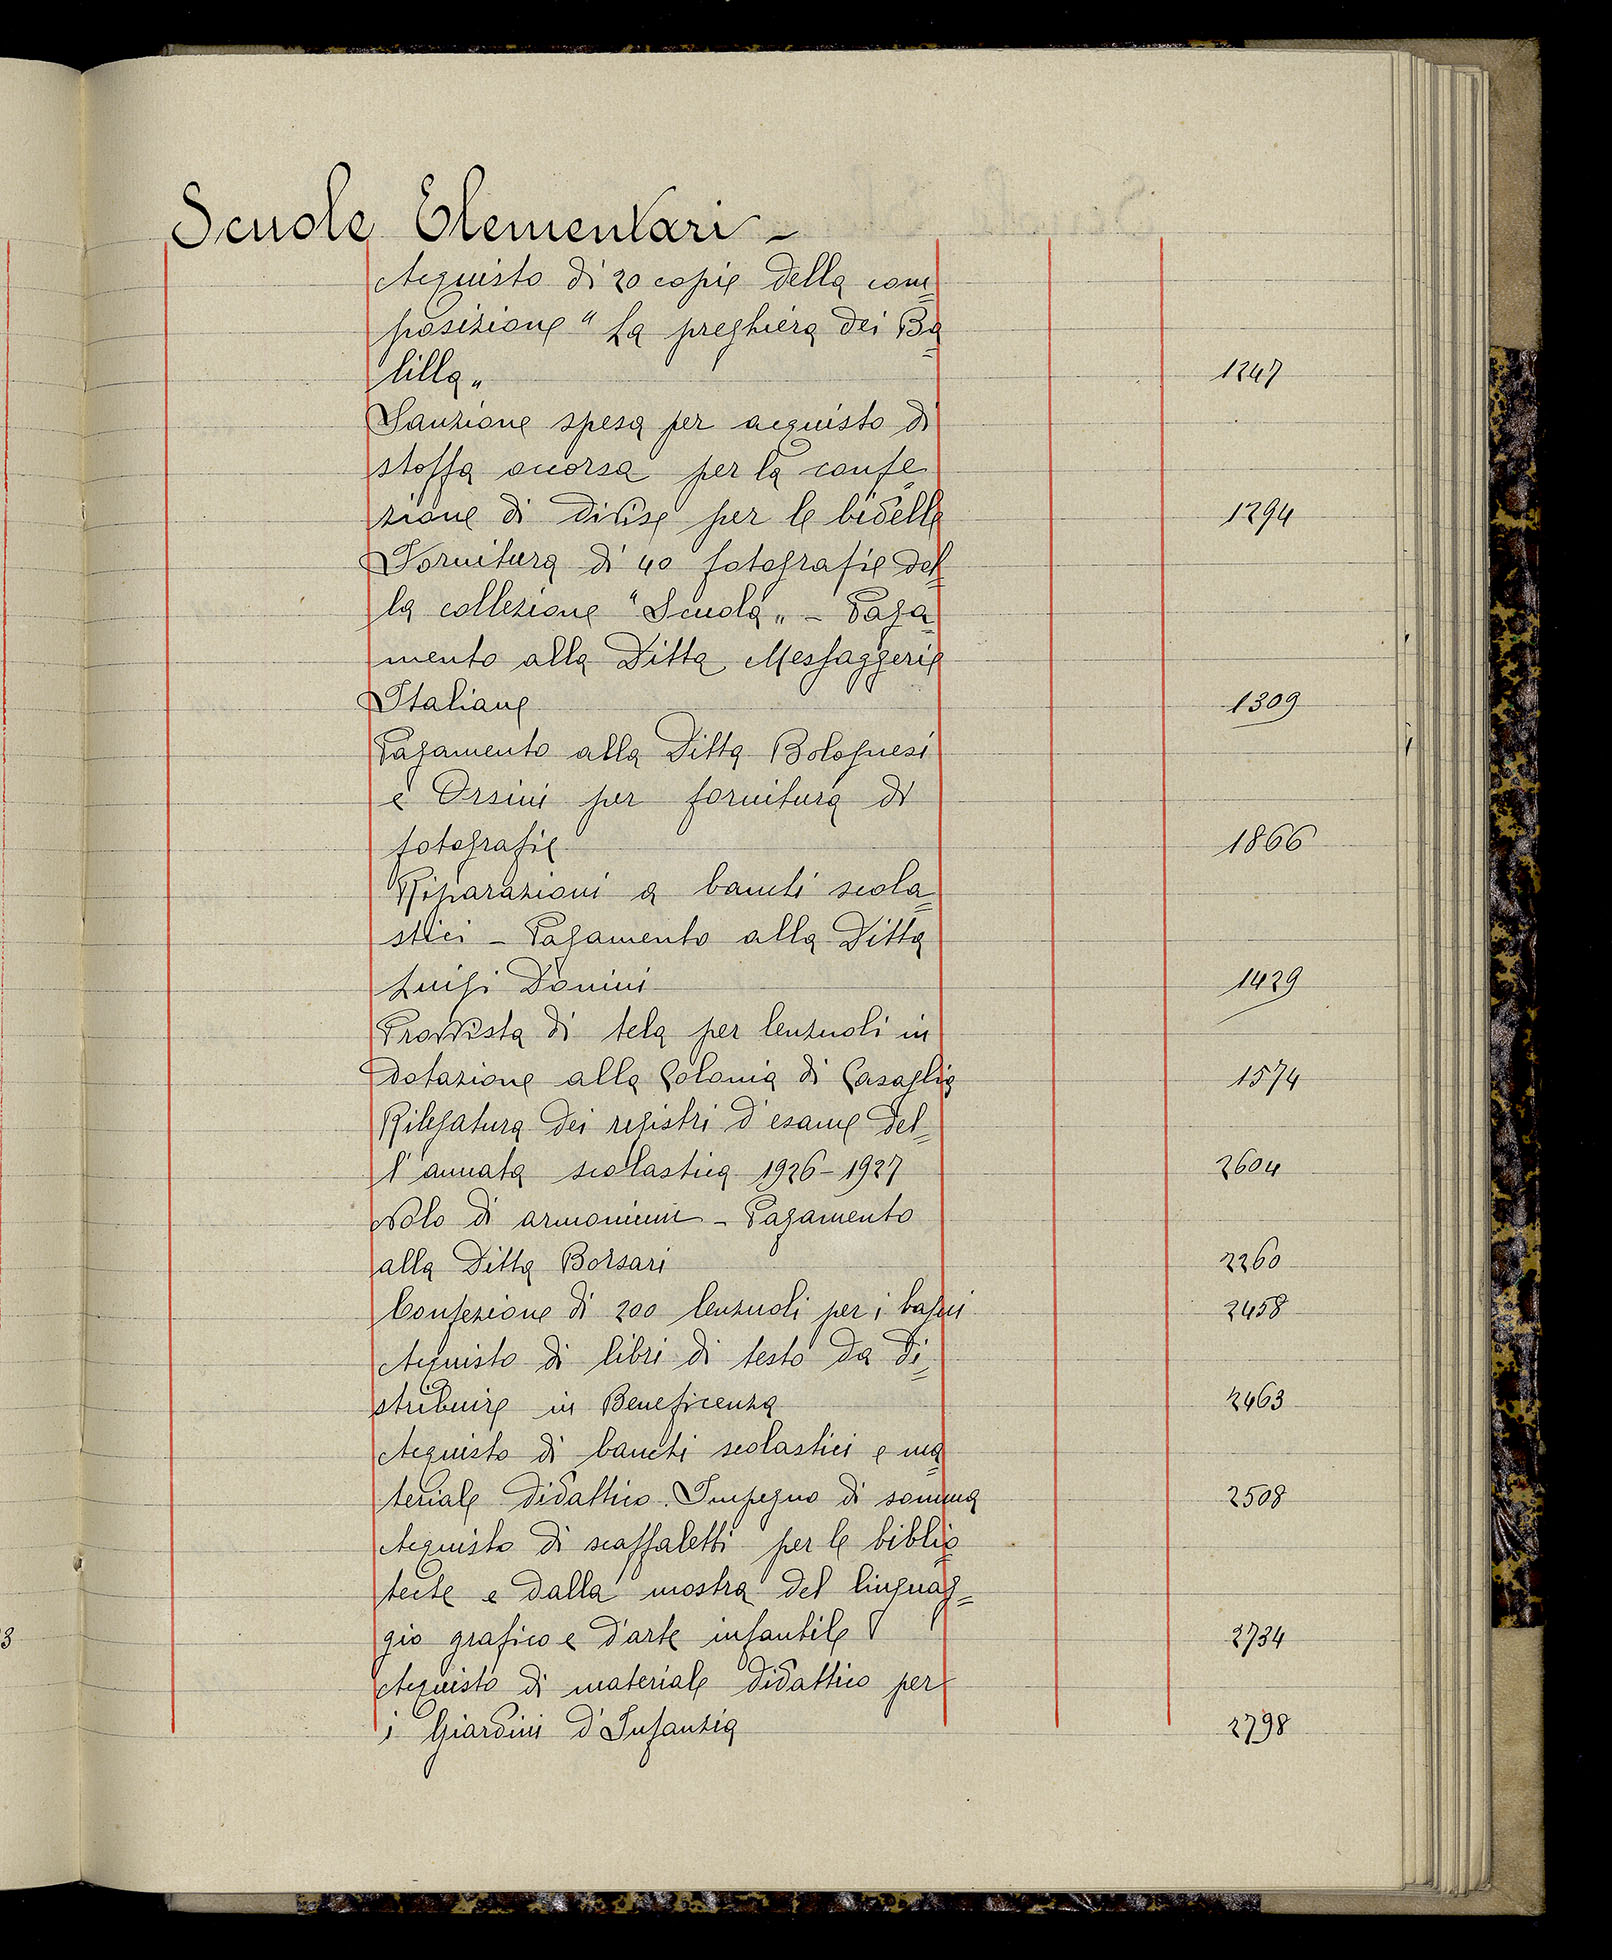 Scuole Elementari -
Acquisto di 20 copie della com=
posizione "La preghiera dei Ba=
lilla„ 1247
Sanzione spesa per acquisto di
stoffa occorsa per la confe
zione di divise per le bidelle 1294
Fornitura di 40 fotografie del=
la collezione "Scuola„ - Paga=
mento alla Ditta Messaggerie
Italiane 1309
Pagamento alla Ditta Bolognesi
e Orsini per fornitura di
fotografie 1866
Riparazioni a banchi scola=
stici - Pagamento alla Ditta
Luigi Donini 1429
Provvista di tela per lenzuoli in
dotazione alla Colonia di Casaglia 1574
Rilegatura dei registri d'esame del=
l'annata scolastica 1926-1927 2604
Nolo di armonium - Pagamento
alla Ditta Borsari 2260
Confezione di 200 lenzuoli per i bagni 2458
Acquisto di libri di testo da di=
stribuire in Beneficenza 2463
Acquisto di banchi scolastici e ma=
teriale didattico. Impegno di somma 2508
Acquisto di scaffaletti per le biblio=
teche e dalla mostra del linguag=
gio grafico e d'arte infantile 2734
Acquisto di materiale didattico per
i Giardini d'Infanzia 2798
3